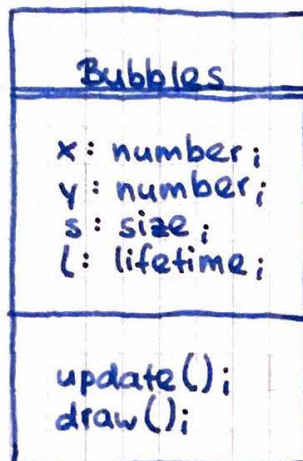 Bubbles
x: number;
y: number;
s: size;
l: lifetime;
update();
draw();